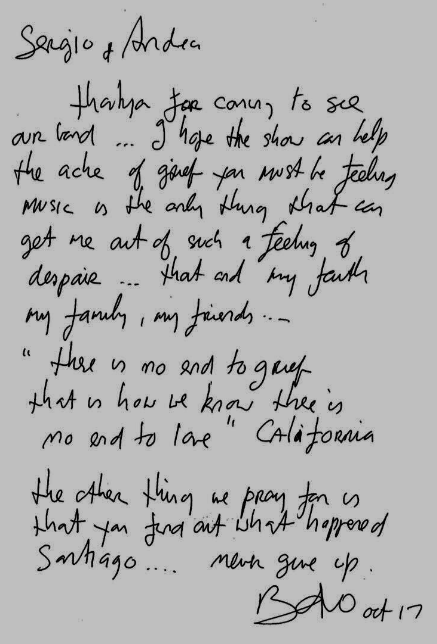 Sergio & Andrea
thankya for coming to see
our band ... I hope the show can help
the ache of grief you must be feeling
music is the only thing that can
get me out of such a feeling of
despair ... that and my faith
my family, my friends ...
"there is no end to grief
that is how we know there is
no end to love" CALIFORNIA
the other thing we pray for is
that you find out what happened
Santiago .... never give up.
BONO oct 17